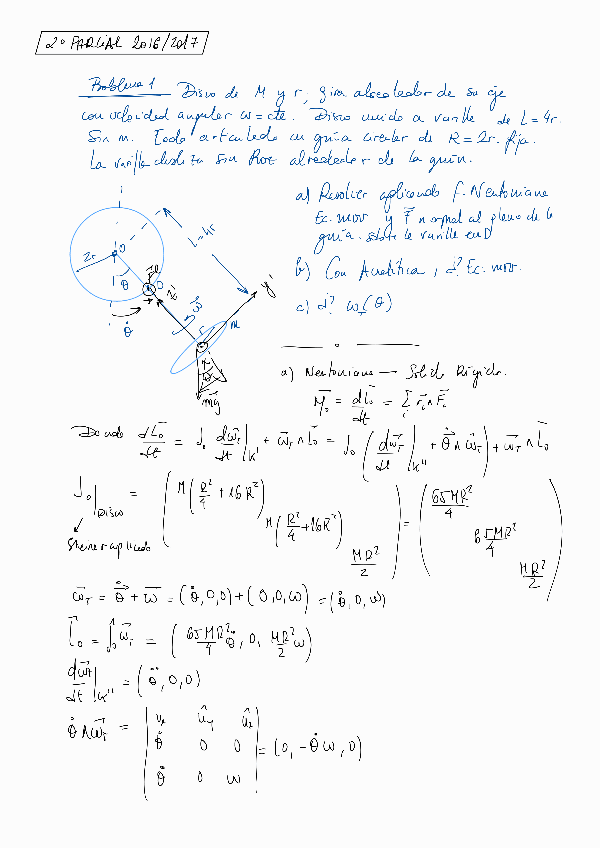 2º PARCIAL 2016/2017
Problema 1 Disco de M y r, gira alrededor de su eje
con velocidad angular ω = cte. Disco unido a varilla de L = 4r.
Sin m. Todo articulado en guía circular de R = 2r. fija.
La varilla desliza sin Roz alrededor de la guía.
a) Resolver aplicando f. Newtoniana
Ec. mov y F normal al plano de la
guía sobre la varilla en D
b) Con Analítica, d? Ec. mov.
c) d? ω_T(θ)
2r
O
θ
D
L=4r
θ̇
N
ω
y'
r
M
mg
a) Newtoniana → Sólido Rígido.
M₀ = dL₀/dt = Σ rᵢ∧Fᵢ
Donde dL₀/dt = J₀ dω_T/dt|K' + ω_T ∧ L₀ = J₀ (dω_T/dt|K'' + θ̇ ∧ ω_T) + ω_T ∧ L₀
J₀|Disco = (M(R²/4 + 16R²) M(R²/4 + 16R²) MR²/2) = (65MR²/4 65MR²/4 MR²/2)
Steiner aplicado
ω_T = θ̇ + ω = (θ̇,0,0) + (0,0,ω) = (θ̇,0,ω)
L₀ = J₀ω_T = (65MR²/4 θ̇, 0, MR²/2 ω)
dω_T/dt|K'' = (θ̈,0,0)
θ̇ ∧ ω_T = |uₓ û_y û_z
θ̇ 0 0
θ̇ 0 ω| = (0, -θ̇ω, 0)